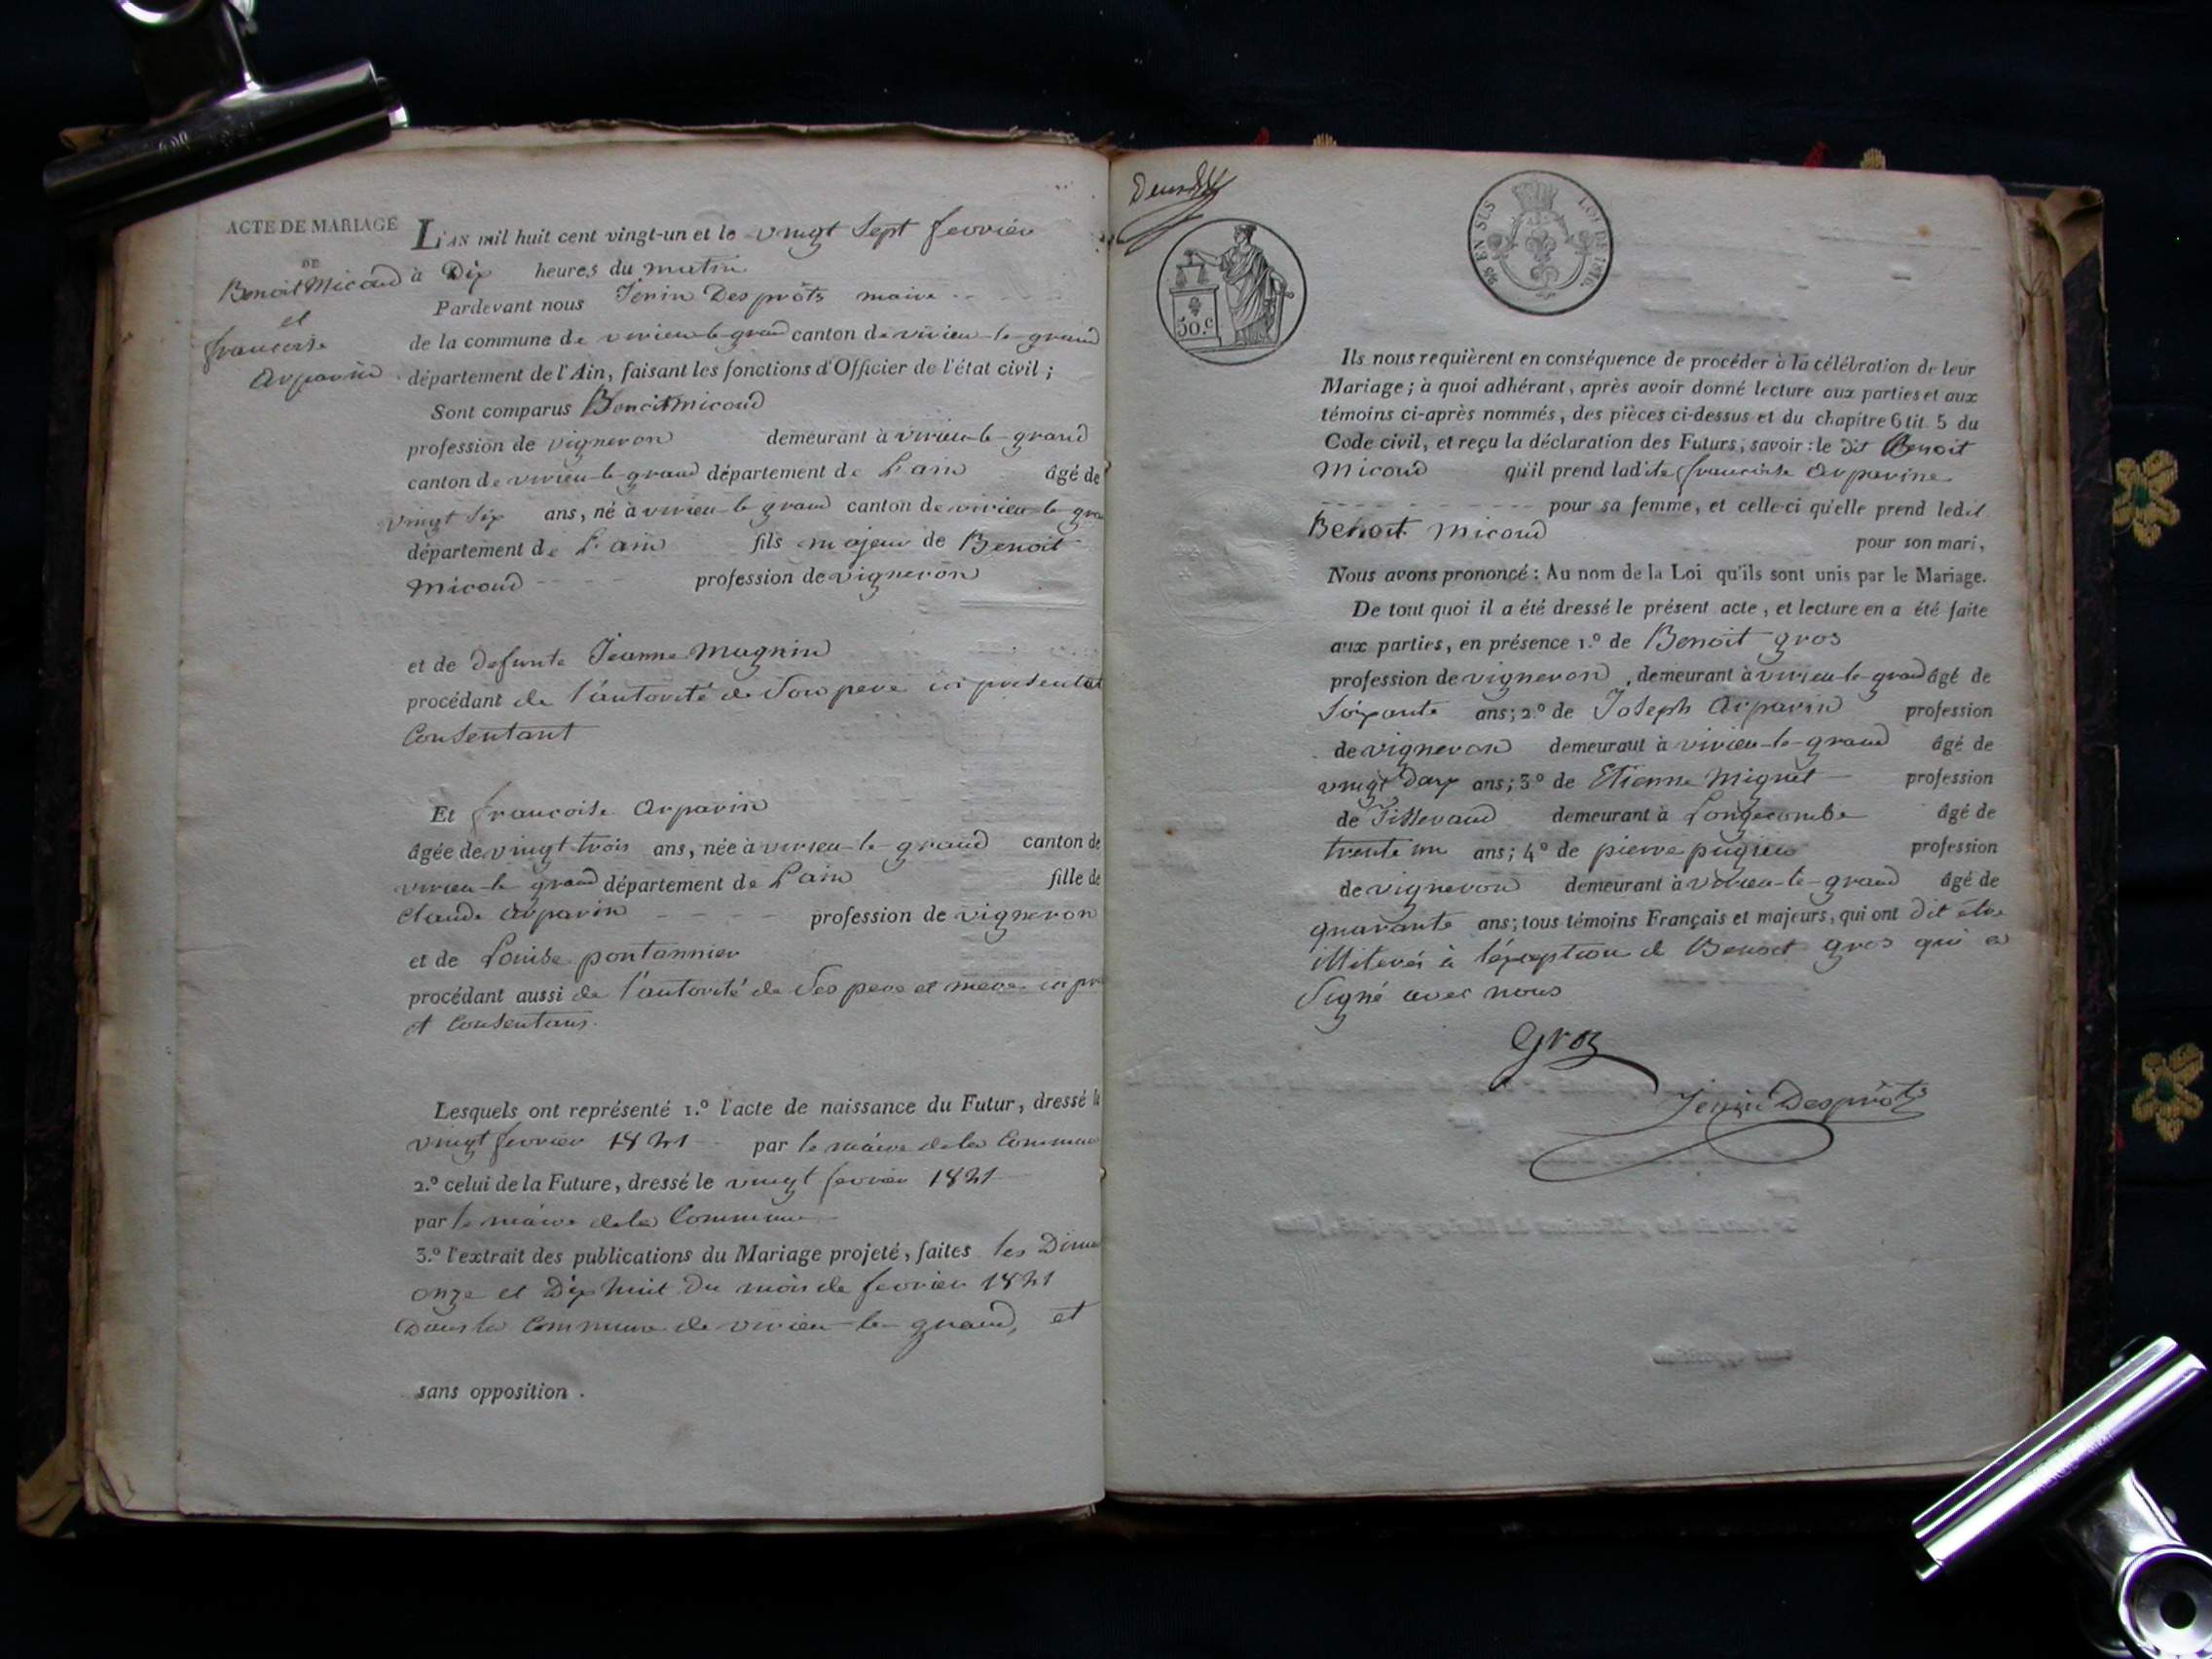 ACTE DE MARIAGE
DE
Benoit Micoud
et
francoise
arparin
L'AN mil huit cent vingt-un et le vingt Sept fevrier
à Dix heures du matin
Pardevant nous Jenin Desprôts maire
de la commune de virieu-le-grand canton de virieu-le-grand
département de l'Ain, faisant les fonctions d'Officier de l'état civil;
Sont comparus Benoit micoud
profession de vigneron demeurant à virieu-le-grand
canton de virieu-le-grand département de L'ain âgé de
vingt Six ans, né à virieu-le grand canton de virieu-le-gra
département de L'ain fils majeur de Benoit
micoud profession de vigneron
et de defunte Jeanne Magnin
procédant de l'autorité de Son pere ici présent et
Consentant
Et francoise arparin
âgée de vingt trois ans, née à virieu-le-grand canton de
virieu-le grand département de L'ain fille de
Claude arparin profession de vigneron
et de Louise pontannier
procédant aussi de l'autorité de Ses pere et mere ici pre
et Consentans.
Lesquels ont représenté 1.º l'acte de naissance du Futur, dressé le
vingt fevrier 1821 par le maire de la Commune
2.º celui de la Future, dressé le vingt fevrier 1821
par le maire de la Commune
3.º l'extrait des publications du Mariage projeté, faites les Dima
onze et Dix huit du mois de fevrier 1821
Dans la Commune de virieu-le-grand, et
sans opposition.
50.c
EN SUS
LOI DE 1816.
Ils nous requièrent en conséquence de procéder à la célébration de leur
Mariage; à quoi adhérant, après avoir donné lecture aux parties et aux
témoins ci-après nommés, des pièces ci-dessus et du chapitre 6 tit. 5 du
Code civil, et reçu la déclaration des Futurs, savoir: le dit Benoit
Micoud qu'il prend ladite francoise arparine
pour sa femme, et celle-ci qu'elle prend ledit
Benoit micoud pour son mari,
Nous avons prononcé: Au nom de la Loi qu'ils sont unis par le Mariage.
De tout quoi il a été dressé le présent acte, et lecture en a été faite
aux parties, en présence 1.º de Benoit gros
profession de vigneron, demeurant à virieu-le-grand âgé de
Soixante ans; 2.º de Joseph arparin profession
de vigneron demeurant à virieu-le-grand âgé de
vingt Deux ans; 3.º de Etienne Mignet profession
de Tisserand demeurant à Longecombe âgé de
trente un ans; 4.º de pierre pugieu profession
de vigneron demeurant à virieu-le-grand âgé de
quarante ans; tous témoins Français et majeurs, qui ont dit être
illiterés à l'éxception de Benoit gros qui a
Signé avec nous
Gros
Jenin Desprôts